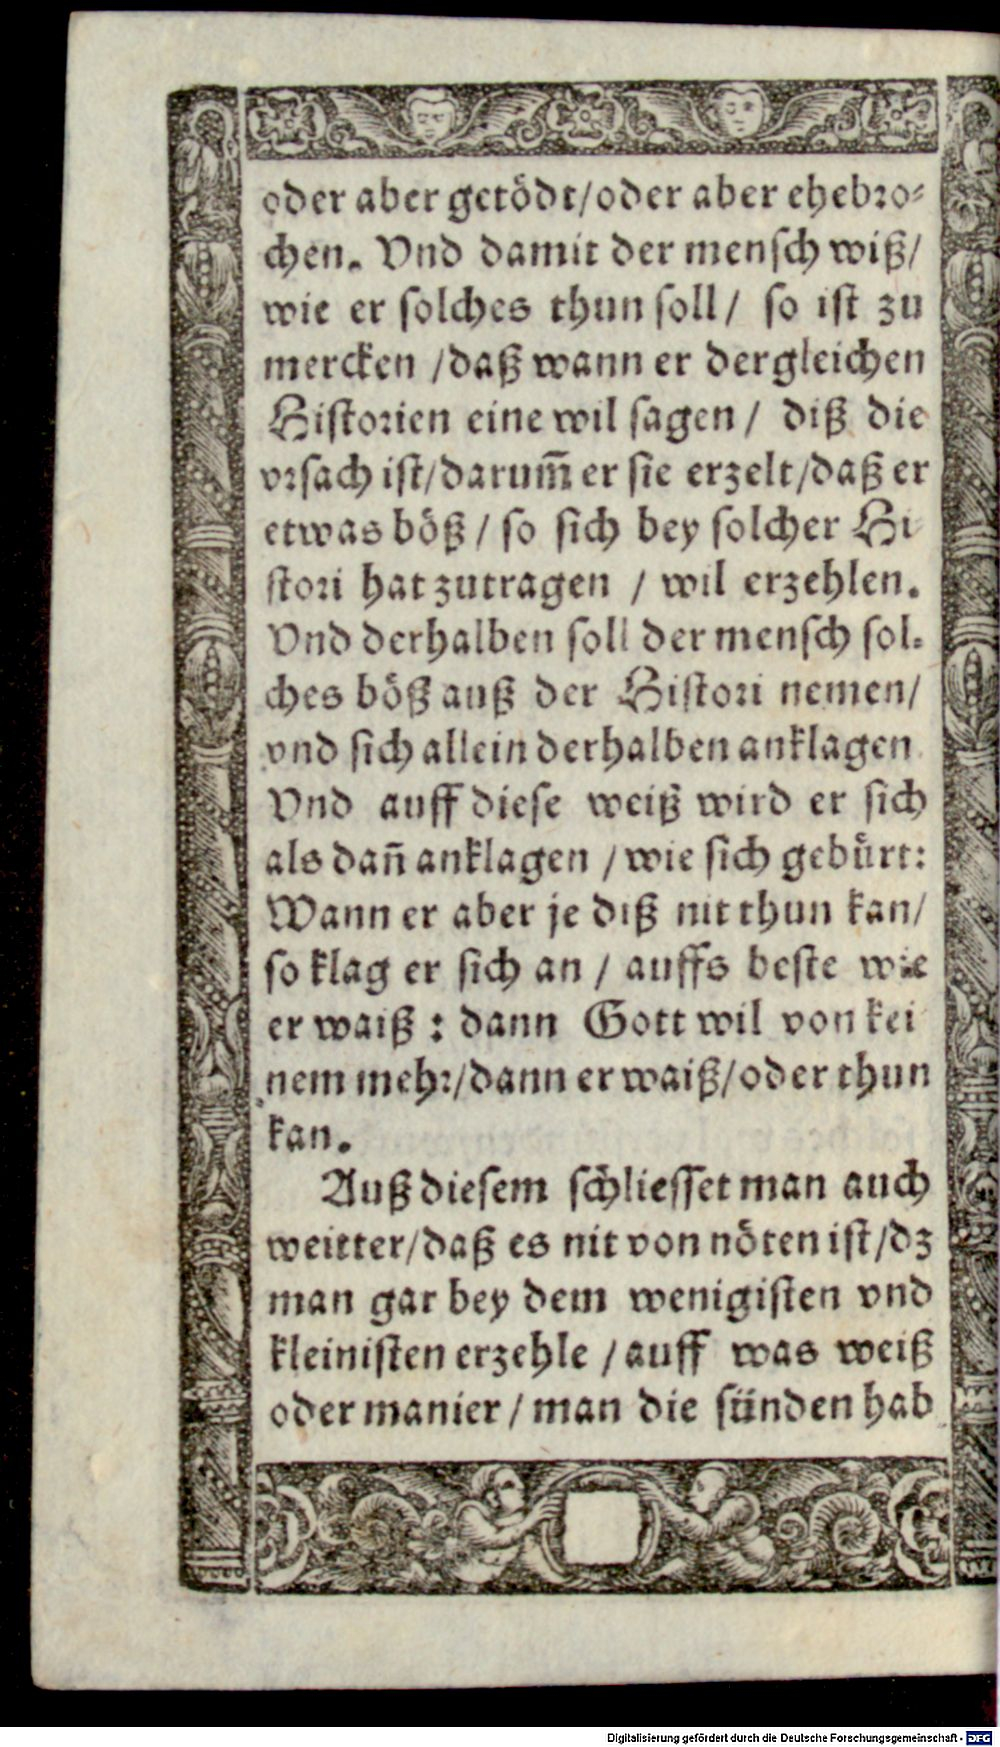 oder aber getödt/oder aber ehebro⸗
chen. Vnd damit der mensch wiß/
wie er solches thun soll/ so ist zu
mercken /daß wann er dergleichen
Historien eine wil sagen / diß die
vrsach ist/darum̃ er sie erzelt/daß er
etwas böß / so sich bey solcher Hi
stori hat zutragen / wil erzehlen.
Vnd derhalben soll der mensch sol⸗
ches böß auß der Histori nemen/
vnd sich allein derhalben anklagen
Vnd auff diese weiß wird er sich
als dañ anklagen / wie sich gebürt:
Wann er aber je diß nit thun kan/
so klag er sich an / auffs beste wie
er waiß : dann Gott wil von kei
nem mehr/dann er waiß/oder thun
kan.
Auß diesem schliesset man auch
weitter/daß es nit von nöten ist/dz
man gar bey dem wenigisten vnd
kleinisten erzehle / auff was weiß
oder manier / man die sünden hab
Digitalisierung gefördert durch die Deutsche Forschungsgemeinschaft - DFG